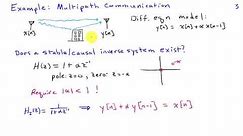 Example: Multipath Communication
3
Diff. eqn model:
y[n] = x[n] + α x[n-1]
x[n]
y[n]
Does a stable/causal inverse system exist?
H(z) = 1 + αz⁻¹
pole: z=0, zero: z=-α
Require |α| < 1 !
H_I(z) = 1/(1+αz⁻¹) ⟹ y[n] + α y[n-1] = x[n]